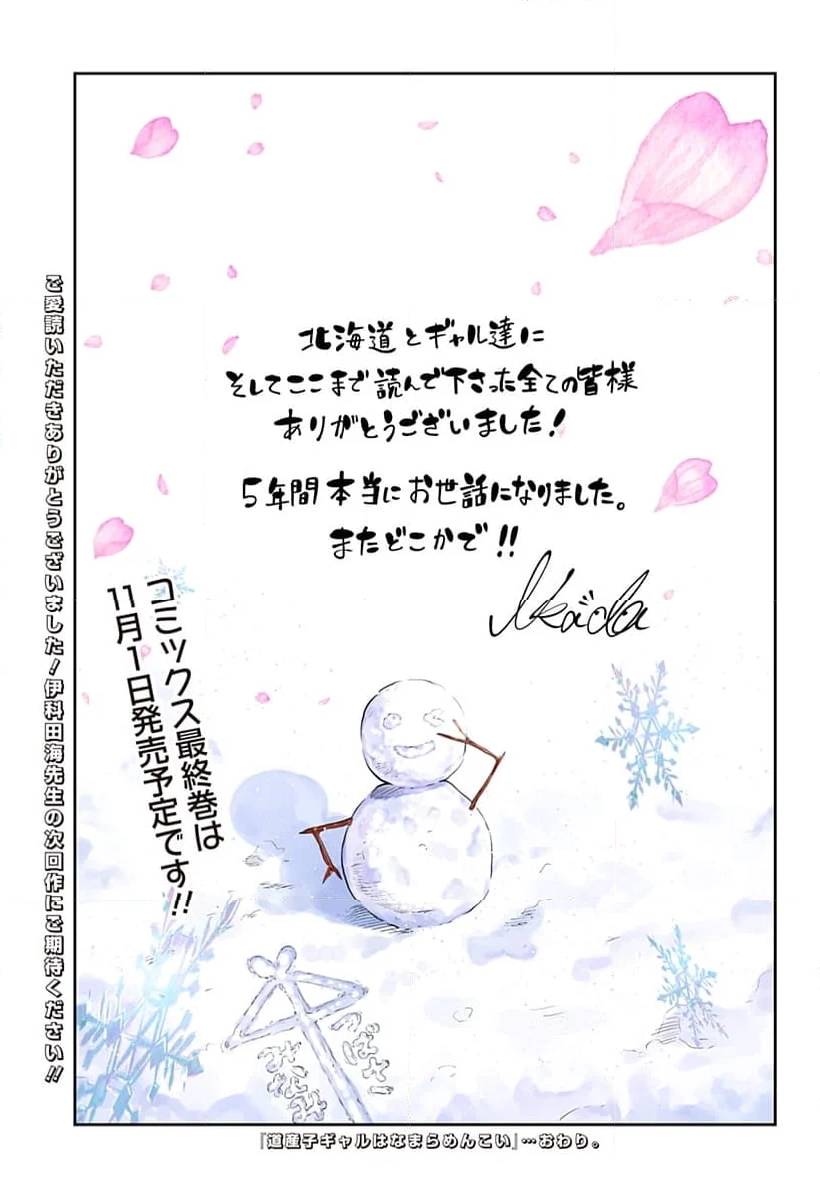 北海道とギャル達に
そしてここまで読んで下さった全ての皆様
ありがとうございました!
5年間本当にお世話になりました。
またどこかで!!
Ikada
コミックス最終巻は
11月1日発売予定です!!
つばさ
みなみ
ご愛読いただきありがとうございました!伊科田海先生の次回作にご期待ください!!
『道産子ギャルはなまらめんこい』…おわり。